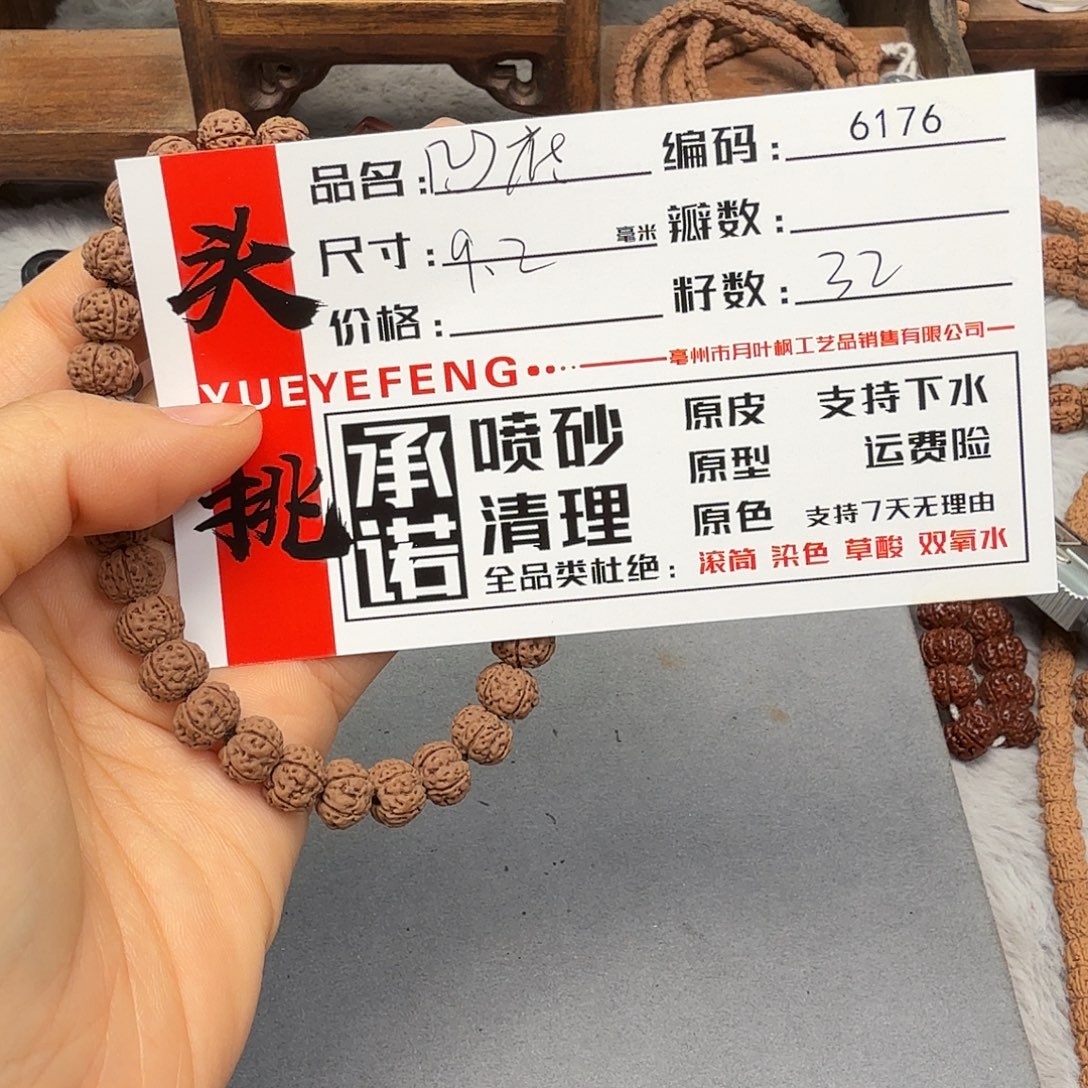 头挑
品名：凹桩
编码：6176
尺寸：9.2毫米
瓣数：
价格：
籽数：32
YUEYEFENG
亳州市月叶枫工艺品销售有限公司
承诺
喷砂
清理
原皮
原型
原色
支持下水
运费险
支持7天无理由
全品类杜绝：滚筒 染色 草酸 双氧水